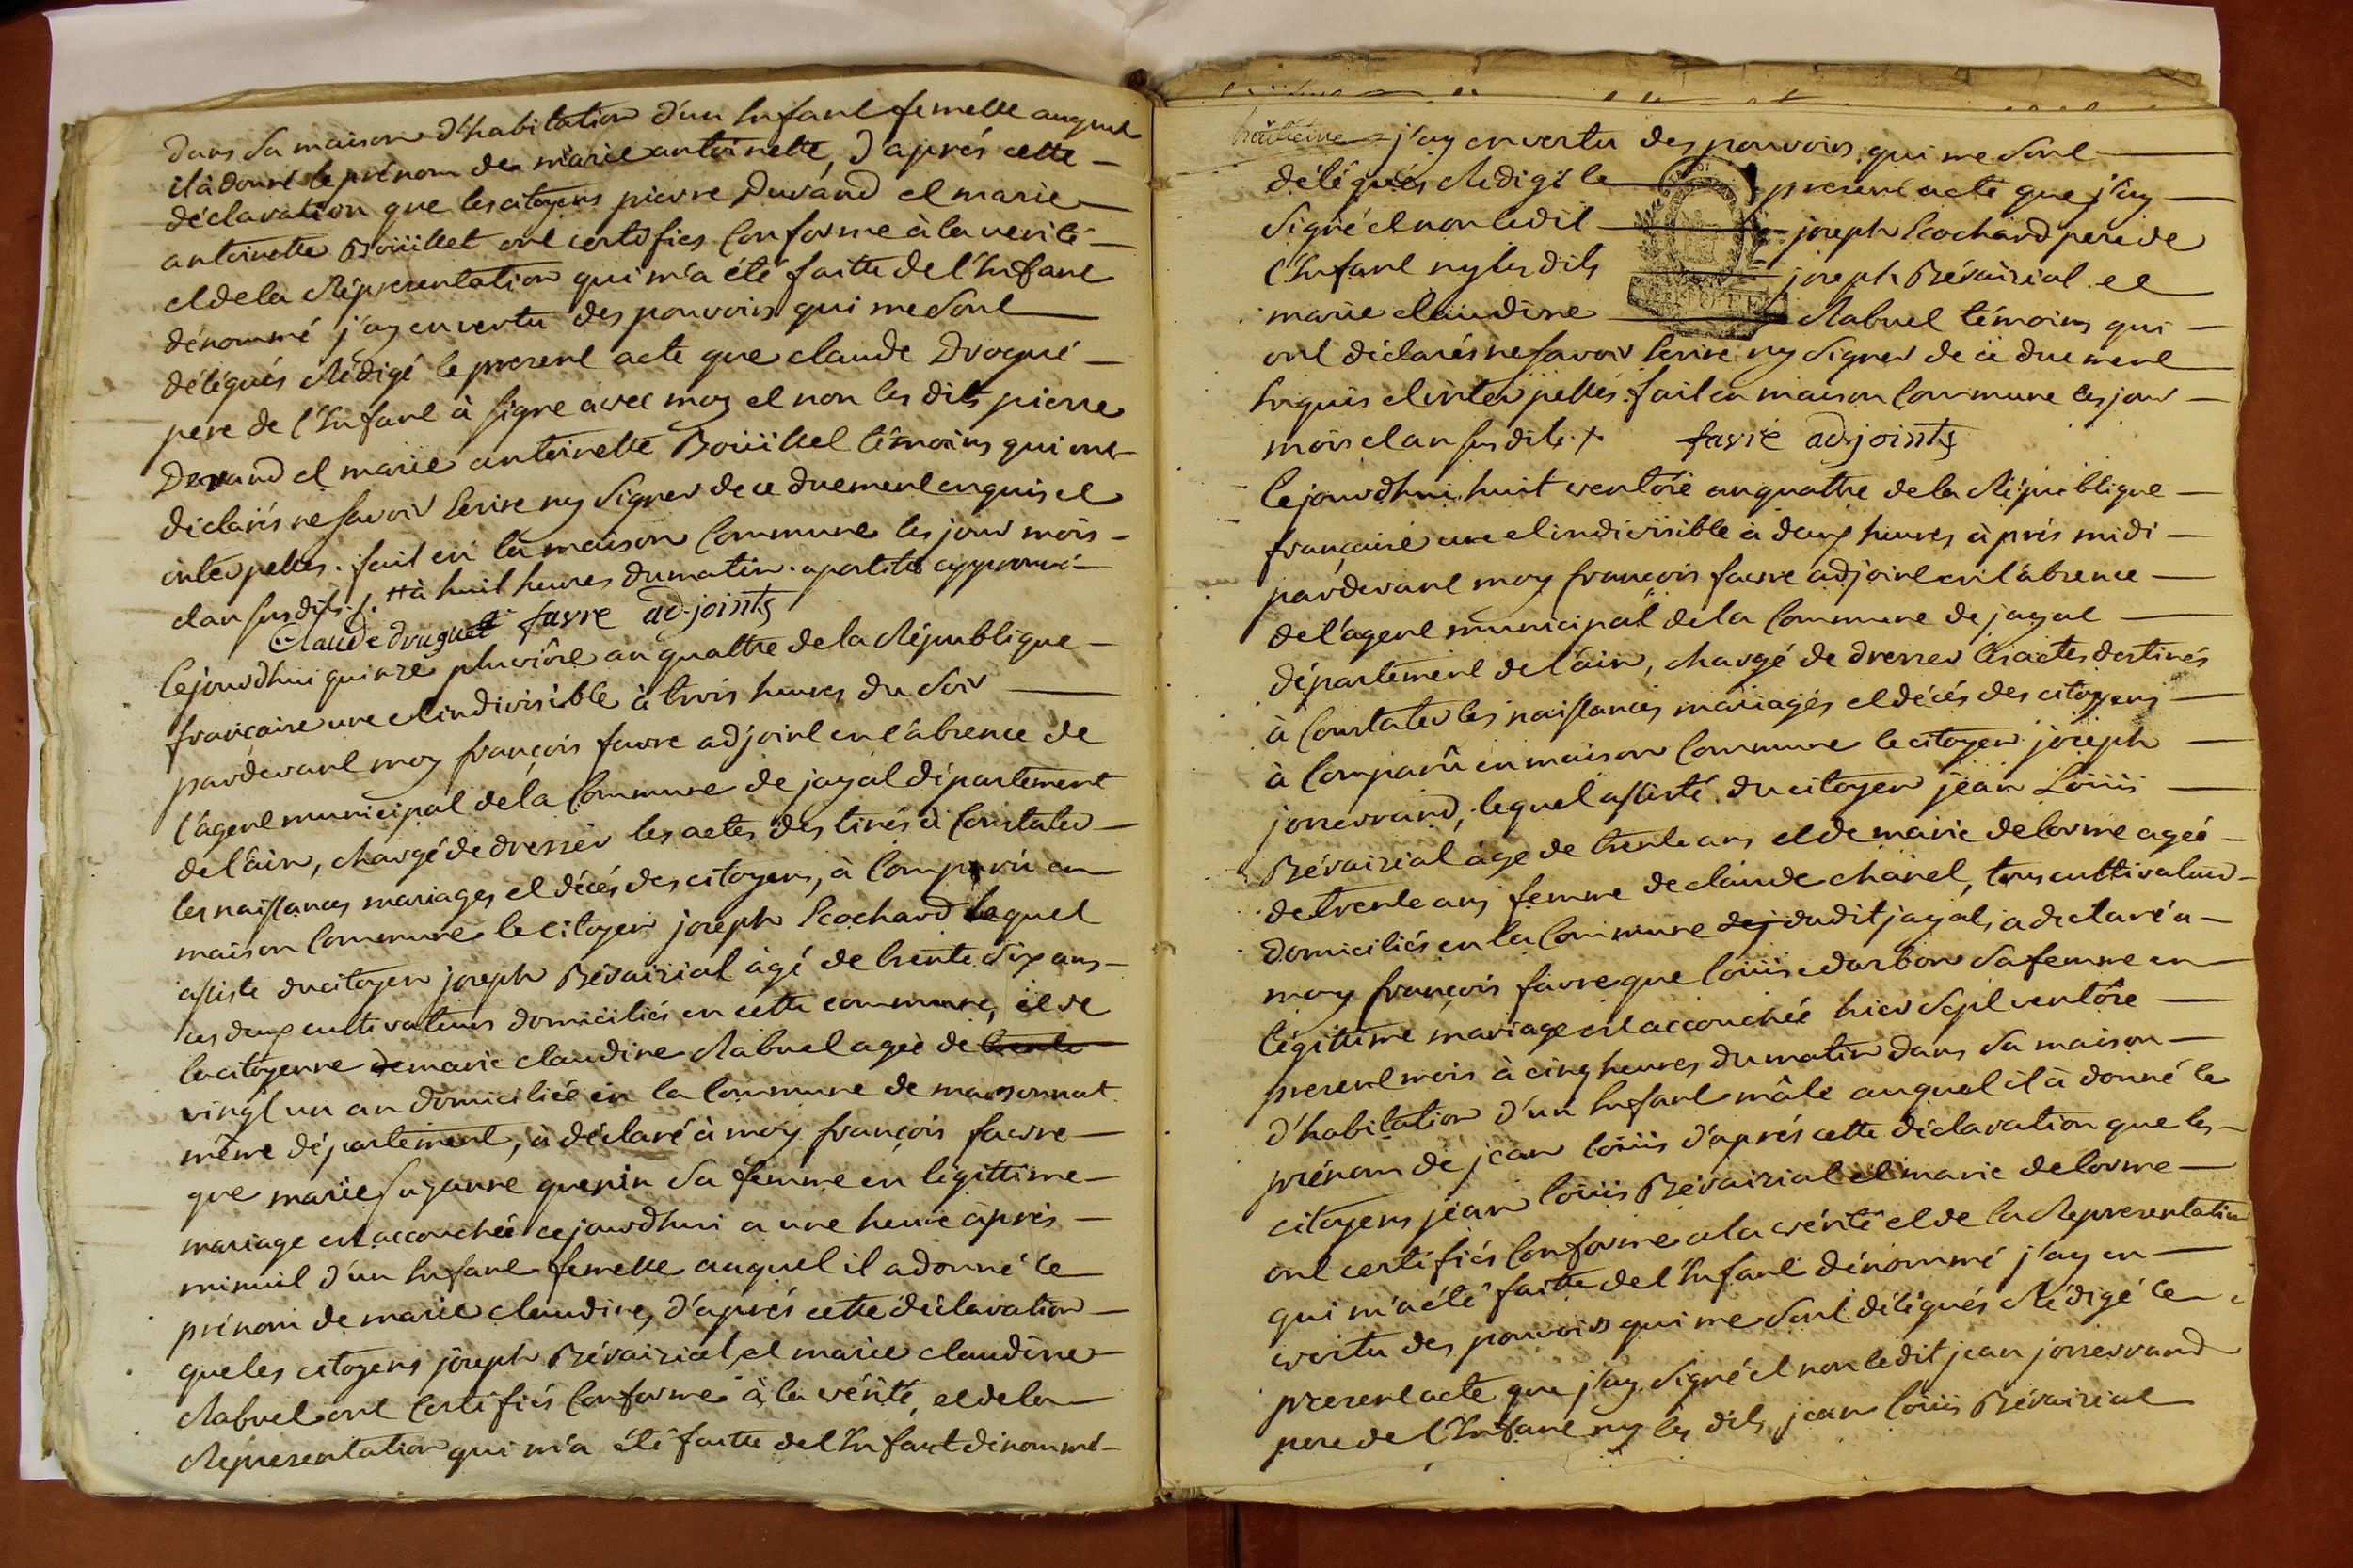 Dans Sa maison d'habitation d'un Enfant femelle auquel
il à donné le prénom de marie antoinette, D'aprés cette
déclaration que les citoyens pierre Durand et marie
antoinette Boüillet ont certifiés Conforme à la verité
et de la Répresentation qui m'a été faitte de l'Enfant
dénommé j'ay en vertu des pouvoirs qui me Sont
délégués Rédigé le present acte que claude Drogué
pere de l'Enfant à signe avec moy et non les dits pierre
Durand et marie antoinette Boüillet témoins qui ont
déclarés ne savoir Ecrire ny Signer de ce duement enquis et
interpellés. fait en la maison Commune les jour mois
et an susdits ./. ++ à huit heures du matin. apostille approuvé
Claude druguet favre adjoints
Cejourdhui quinze pluviôse an quattre de la République
française une et indivisible à trois heures du Soir
pardevant moy françois favre adjoint en l'absence de
l'agent municipal de la Commune de jayat département
de l'ain, chargé de dresser les actes destinés à Constater
les naissances mariages et décés des citoyens, à Comparû en
maison Commune le citoyen joseph Cochard lequel
assisté du citoyen joseph Révairial âgé de trente Six ans
ces deux cultivateurs domiciliés en cette commune, et de
la citoyenne de marie claudine Rabuel agée de trente
vingt un an domiciliée en la Commune de marsonnat
même département, à déclaré à moy françois favre
que marie suzanne guerin Sa femme en légittime
mariage est accouchée cejourdhui a une heure aprés
minuit d'un Enfant femelle auquel il a donné le
prénom de marie claudine, d'aprés cette déclaration
que les citoyens joseph Révairial et marie claudine
Rabuel ont Certifiés Conforme à la vérité, et de la
Représentation qui m'a été faitte de l'Enfant dénommé
j'ay en vertu des pouvoirs qui me Sont
délégués Rédigé le present acte que j'ay
Signé et non ledit joseph Cochard pere de
l'Enfant ny les dits joseph Révairial et
marie claudine Rabuel témoins qui
ont déclarés ne savoir Ecrire ny Signer de ce duement
Enquis et interpellés. fait en maison Commune les jour
mois et an susdits ./. favre adjoints
Cejourdhui huit ventôse an quattre de la République
française une et indivisible à deux heures àprés midi
pardevant moy françois favre adjoint en l'absence
de l'agent municipal de la Commune de jayat
département de l'ain, chargé de dresser les actes destinés
à Constater les naissances mariages et décés des citoyens
à Comparû en maison Commune le citoyen joseph
josserand, lequel assisté du citoyen jean Loüis
Révairial âgé de trente ans et de marie delorme agée
de trente ans femme de claude chanel, tous cultivateurs
domiciliés en la Commune dej dudit jayat, a déclaré a
moy françois favre que loüise darbon Sa femme en
légittime mariage est accouchée hier Sept ventôse
present mois à cinq heures du matin dans Sa maison
d'habitation d'un Enfant mâle auquel il à donné le
prénom de jean loüis d'aprés cette déclaration que les
citoyens jean loüis Révairial et marie delorme
ont certifiés Conforme a la vérité et de la Representation
qui m'a été faitte de l'Enfant dénommé j'ay en
vertu des pouvoirs qui me Sont délégués Rédigé le
present acte que j'ay Signé et non ledit jean josserand
pere de l'Enfant ny les dits jean loüis Révairial